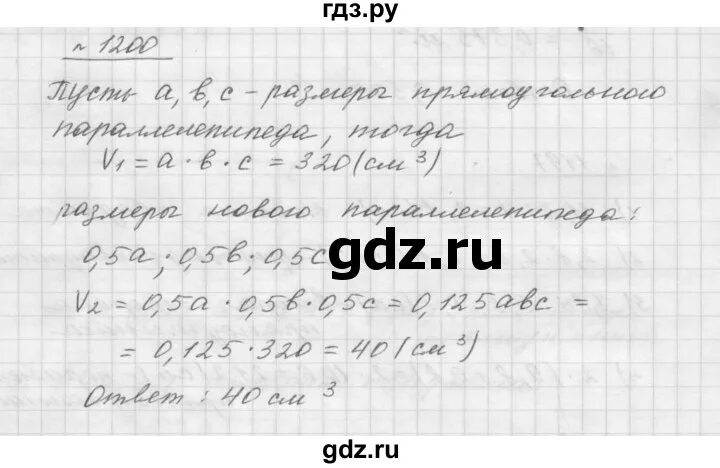 гдз.ру
№ 1200
Пусть а, в, с - размеры прямоугольного
параллелепипеда, тогда
V₁ = а · в · с = 320 (см³)
размеры нового параллелепипеда:
0,5а ; 0,5в ; 0,5с
gdz.ru
V₂ = 0,5а · 0,5в · 0,5с = 0,125авс =
= 0,125 · 320 = 40 (см³)
Ответ : 40 см³
gdz.ru